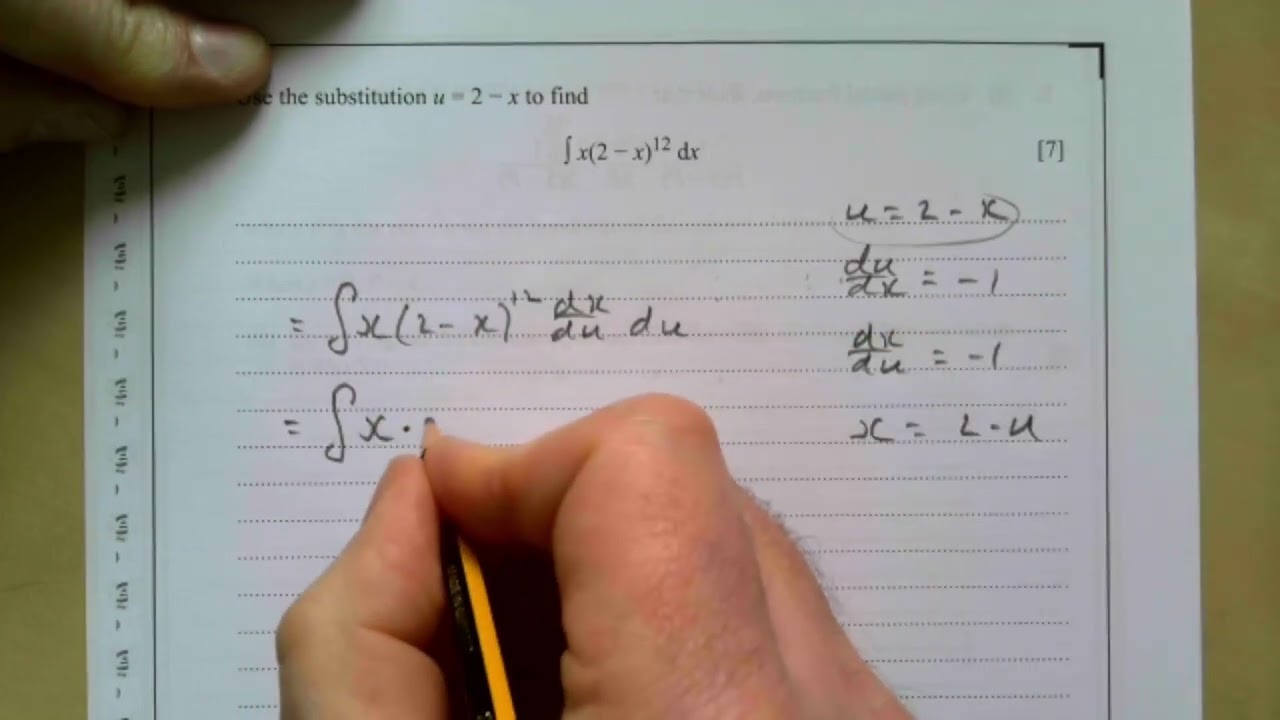 the substitution u = 2 − x to find
∫ x(2 − x)¹² dx [7]
u = 2 - x
du/dx = -1
= ∫ x(2 - x)¹² dx/du du
dx/du = -1
= ∫ x ·
x = 2 - u